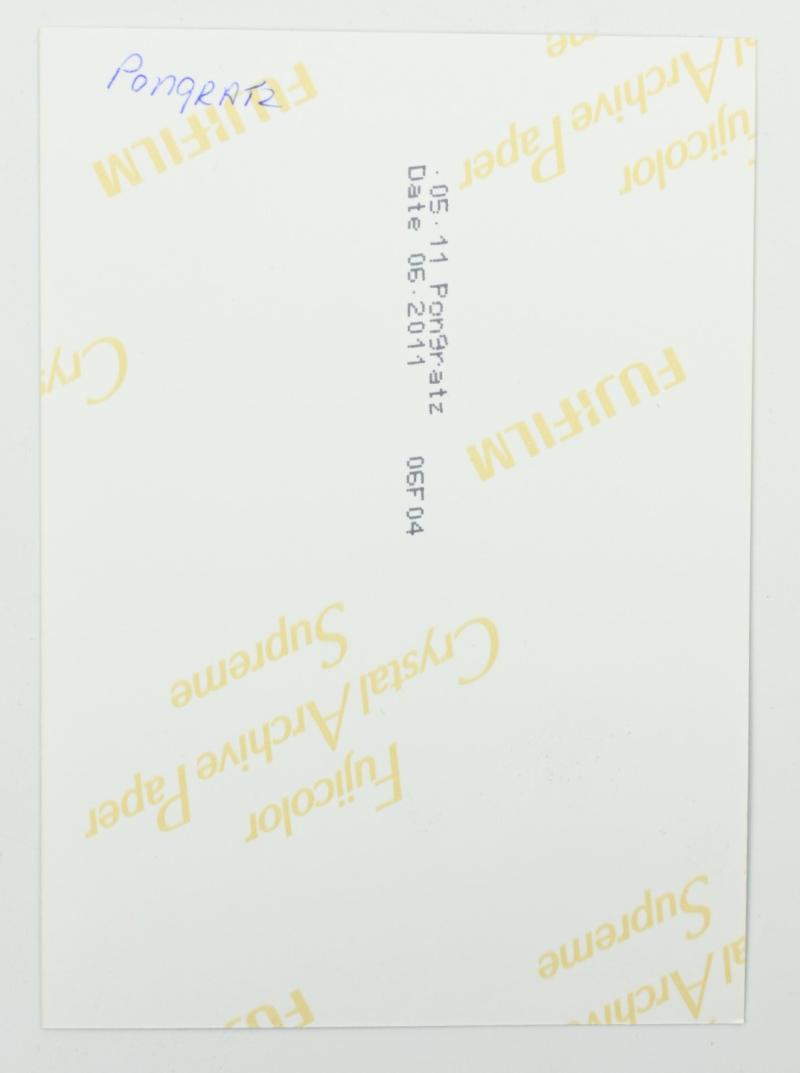 PongRATZ
.05.11 Pongratz
Date 06.2011 06F04
FUJIFILM
Supreme
Crystal Archive Paper
Fujicolor
FUJIFILM
Crys
Supreme
Crystal Archive Paper
Fujicolor
Supreme
al Archiv
FUJ